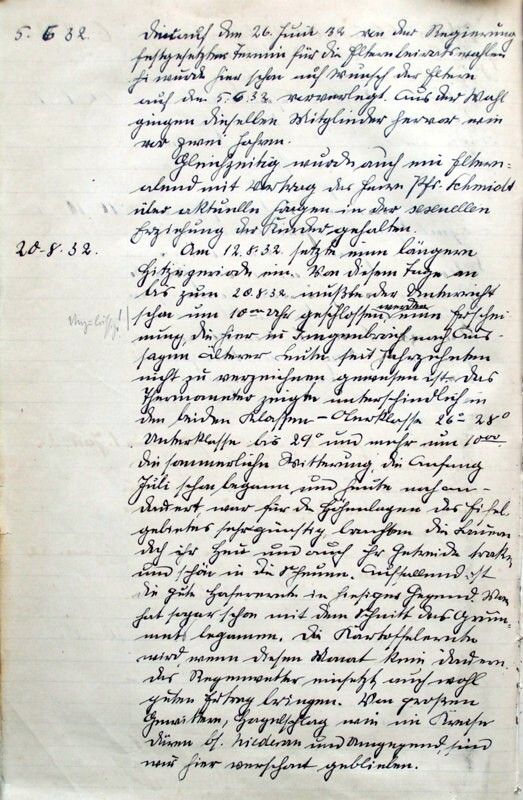 5.6.32. Der auf den 26. Juni 32 von der Regierung
festgesetzte Termin für die Elternbeiratswahlen
wurde hier schon auf Wunsch der Eltern
auf den 5.6.32 vorverlegt. Aus der Wahl
gingen dieselben Mitglieder hervor wie
vor zwei Jahren.
Gleichzeitig wurde auch ein Eltern-
abend mit Vortrag des Herrn Pfr. Schmidt
über aktuelle Fragen in der sexuellen
Erziehung der Kinder gehalten.
20.8.32. Am 12.8.32 setzte eine längere
Hitzeperiode ein. Von diesem Tage an
bis zum 20.8.32 mußte der Unterricht
schon um 10 00 Uhr geschlossen werden, eine Erschei
nung, die hier in nach Aus-
sagen älterer Leute seit Jahrzehnten
nicht zu verzeichnen gewesen ist. Das
Thermometer zeigte unterschiedlich in
den beiden Klassen – Oberklasse 26 – 28°
Unterklasse bis 29° und mehr um 10 00.
Die sommerliche Witterung, die Anfang
Juli schon begann und heute noch an-
dauert, war für die Höhenlagen des Eifel
gebietes sehr günstig, brachten die Bauern
doch ihr Heu und auch ihr Getreide
und schön in die Scheunen. Auffallend ist
die gute Haferernte in hiesiger Gegend. Man
hat sogar schon mit dem Schnitt des Grum-
mets begonnen. Die Kartoffelernte
wird wenn diesen Monat kein
des Regenwetter einsetzt auch wohl
guten Ertrag bringen. Von großen
Gewittern, Hagelschlag wie im Kreise
Düren bes. Niederau und Umgegend, sind
wir hier verschont geblieben.